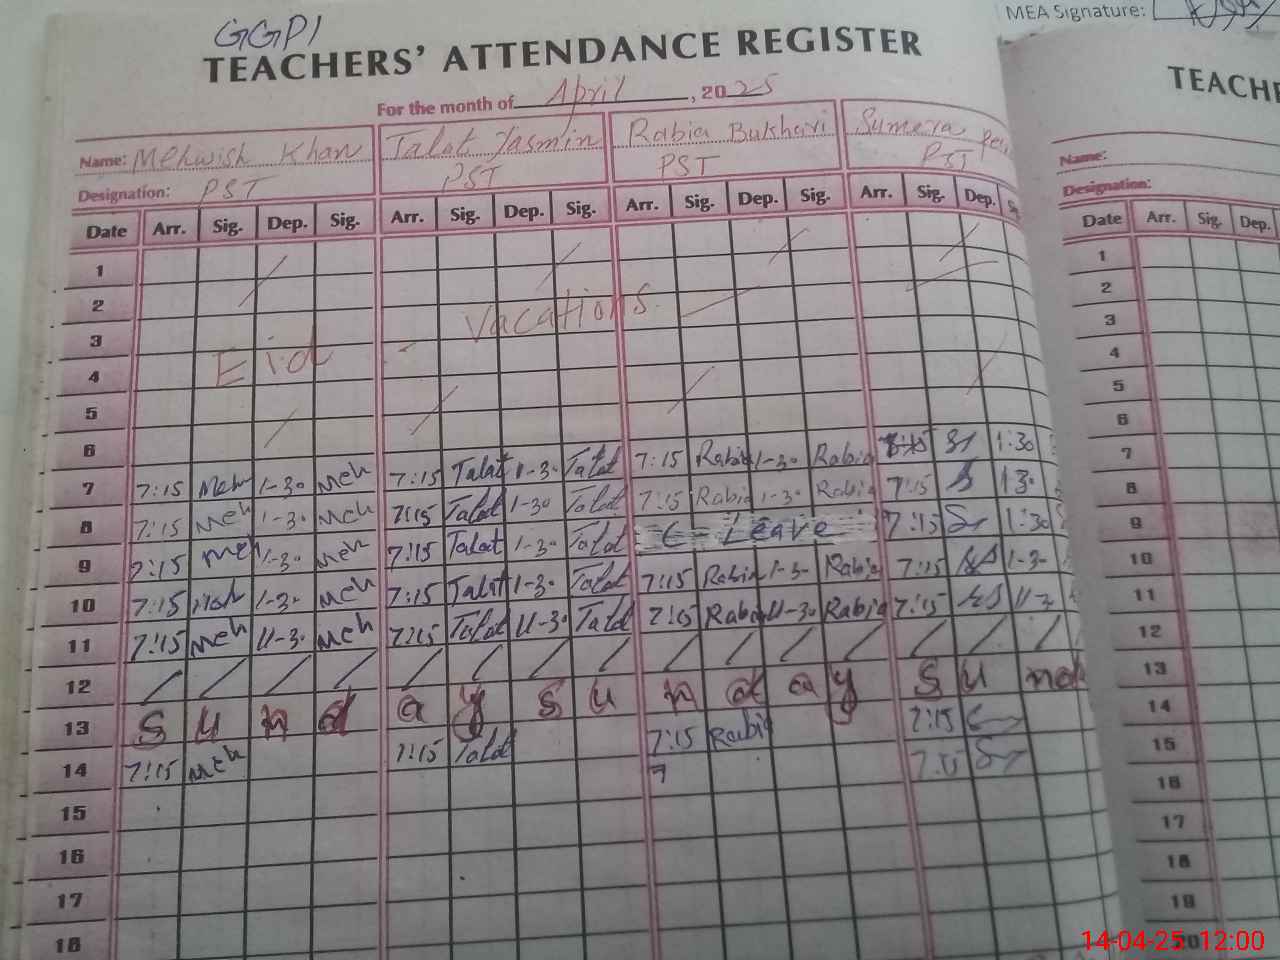 MEA Signature:
GGPI
TEACHERS' ATTENDANCE REGISTER
For the month of April, 2025
Name: Mehwish Khan Talat Yasmin Rabia Bukhari Sumera
Designation: PST PST PST PST
Date Arr. Sig. Dep. Sig. Arr. Sig. Dep. Sig. Arr. Sig. Dep. Sig. Arr. Sig. Dep.
1
2 Vacations
3 Eid
4
5
6
7 7:15 Meh 1-30 Meh 7:15 Talat 1-30 Talat 7:15 Rabia 1-30 Rabia 1:30
8 7:15 Meh 1-30 Meh 7:15 Talat 1-30 Talat 7:15 Rabia 1-30 Rabia 7:15 130
9 7:15 Meh 1-30 Meh 7:15 Talat 1-30 Talat C-Leave 7:15 1:30
10 7:15 Meh 1-30 Meh 7:15 Talat 1-30 Talat 7:15 Rabia 1-30 Rabia 7:15 1-30
11 7:15 Meh 11-30 Meh 7:15 Talat 11-30 Talat 7:15 Rabia 11-30 Rabia 7:15 11-3
12 / / / / / / / / / / / / / / /
13 S u n d a y S u n d a y S u n d
14 7:15 Meh 7:15 Talat 7:15 Rabia 7:15
15 7 7:15
16
17
18
TEACHE
Name:
Designation:
Date Arr. Sig. Dep.
1
2
3
4
5
6
7
8
9
10
11
12
13
14
15
16
17
18
19
20
14-04-25 12:00